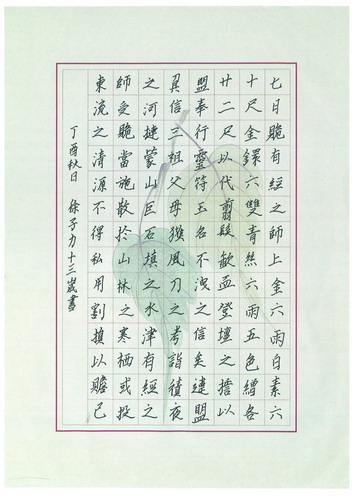 七日賝有經之師上金六兩白素六
十尺金鐶六雙青絲六兩五色繒各
廿二尺以代翦髮歃血登壇之擔以
盟奉行靈符玉名不洩之信矣違盟
負信三祖父母獲風刀之考詣積夜
之河揵蒙山巨石填之水津有經之
師受賝當施散於山林之寒栖或投
東流之清源不得私用割損以贍己
丁酉秋日 徐子力十三歲書